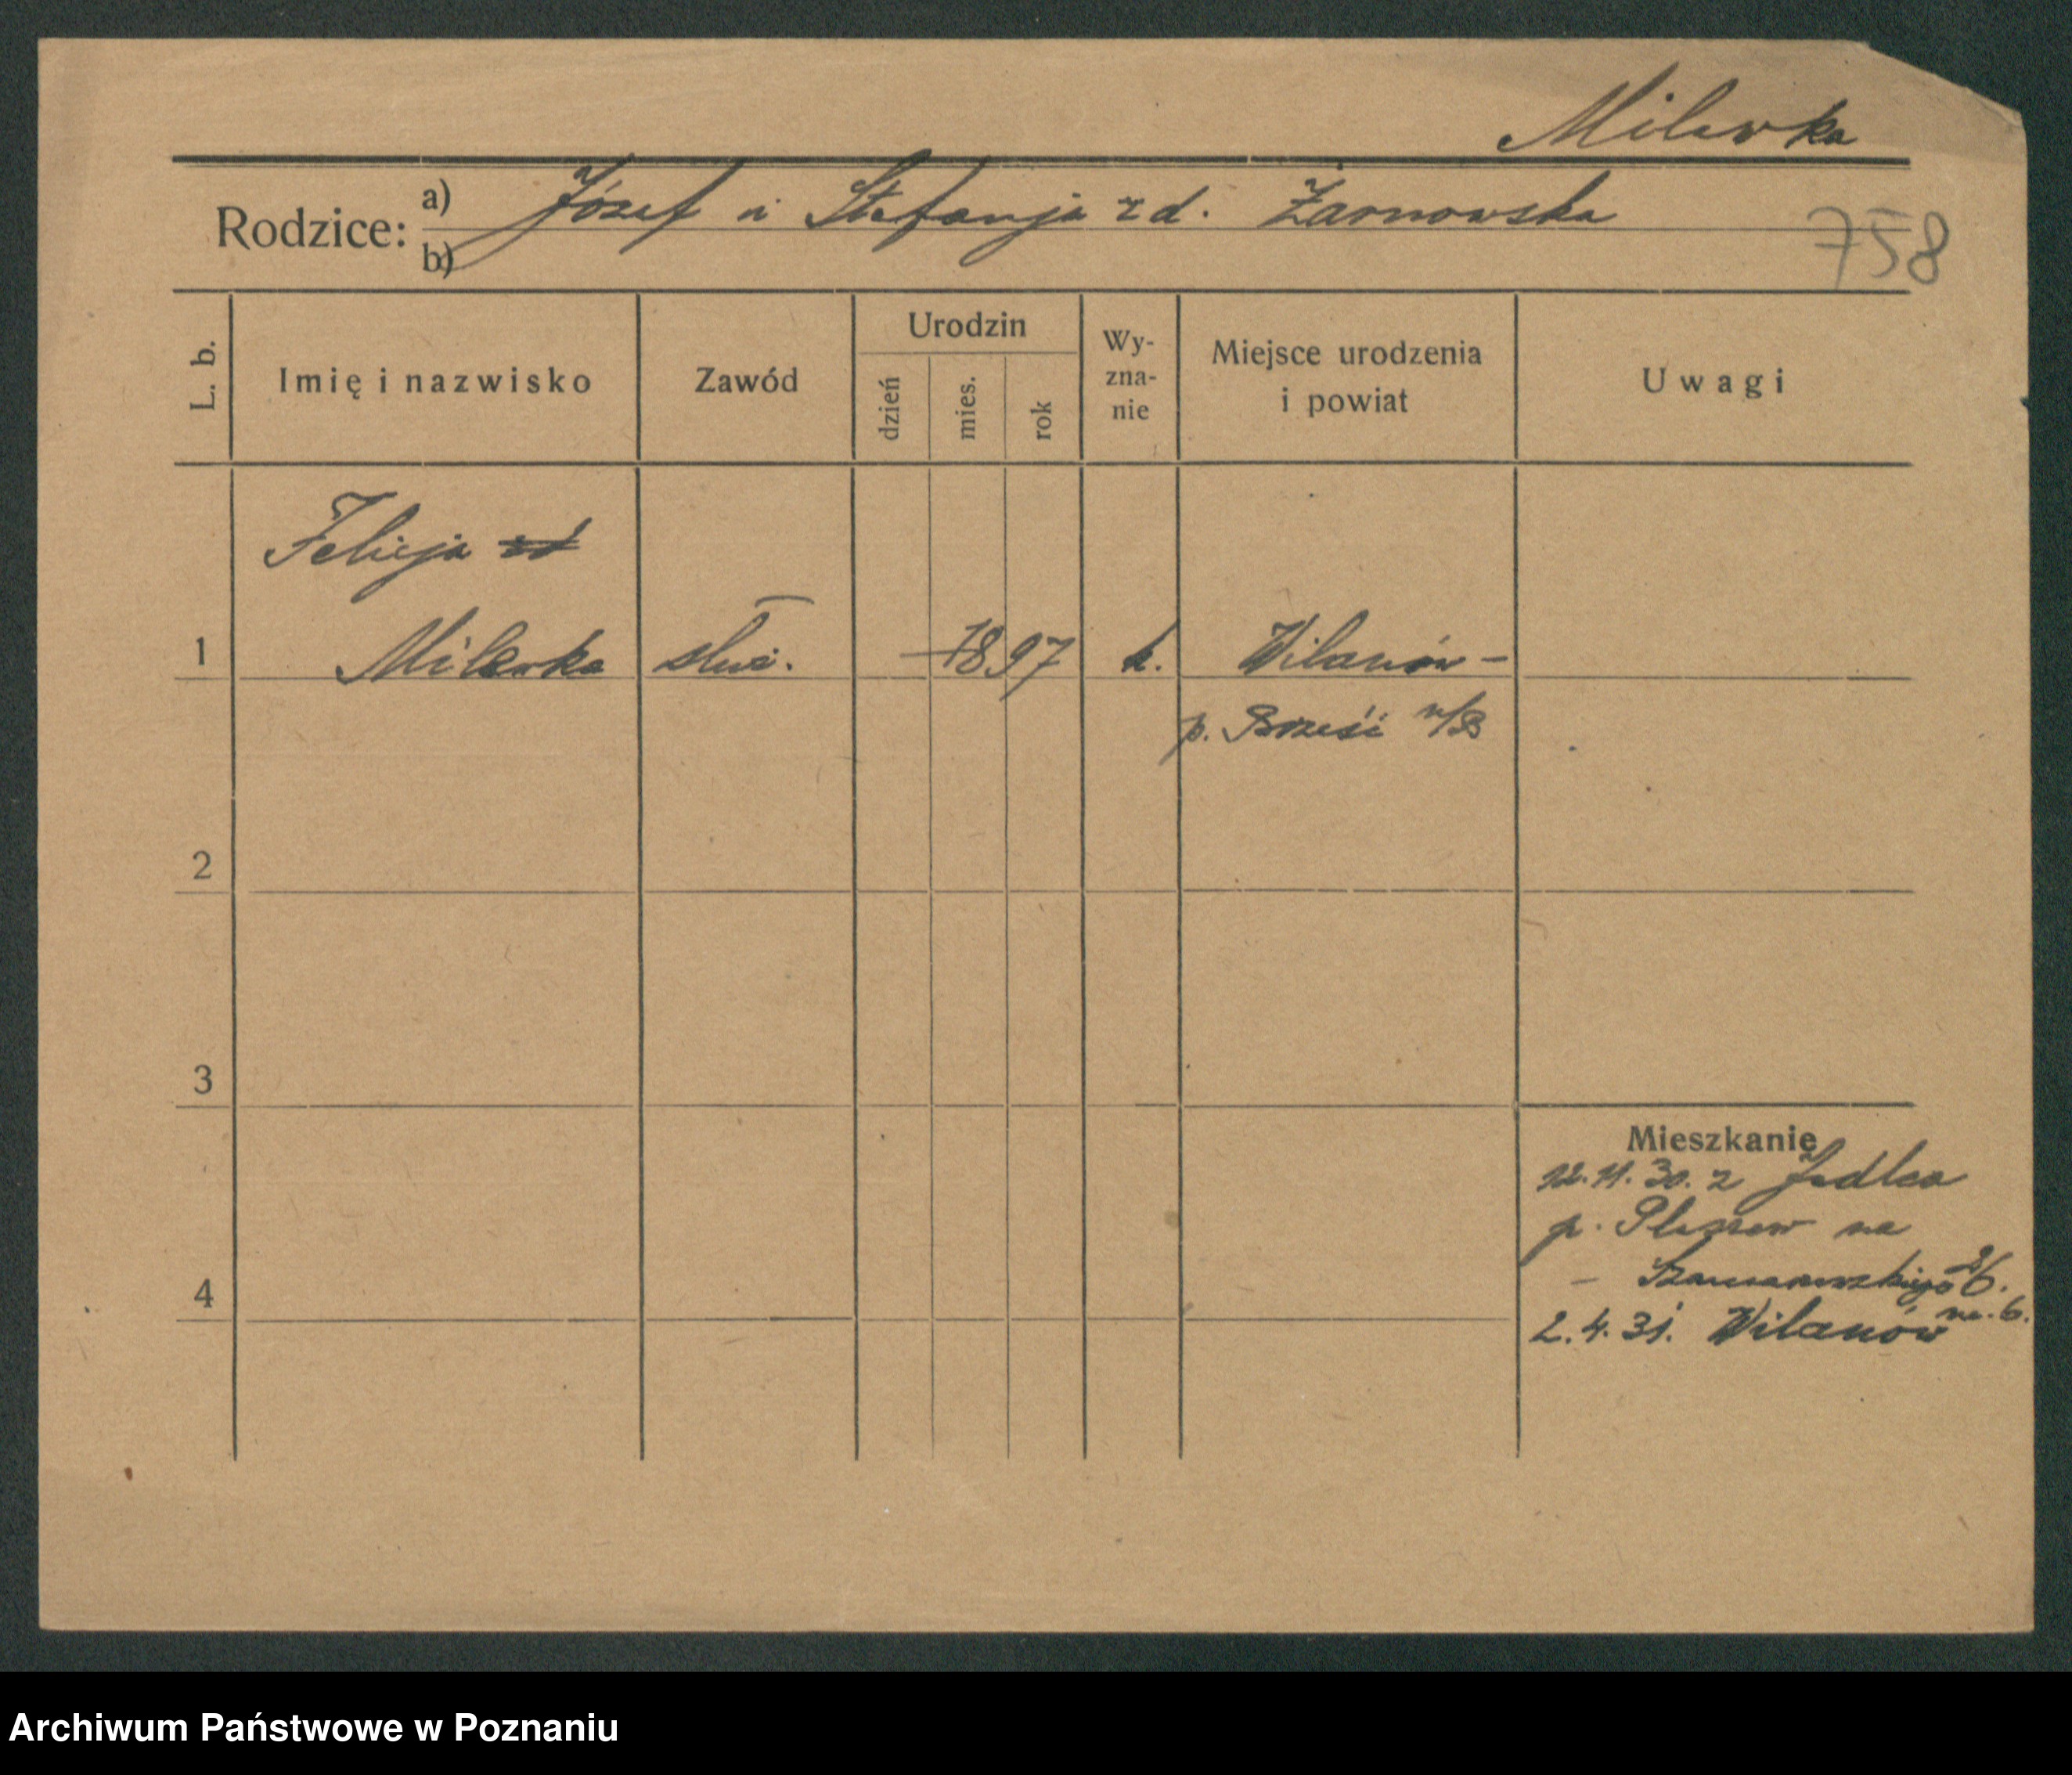 Milewka
Rodzice: a) Józef i Stefanja z d. Żarnowska
b)
758
L. b. Imię i nazwisko Zawód Urodzin dzień mies. rok Wy-zna-nie Miejsce urodzenia i powiat Uwagi
Felicja zd
1 Milewka służ. – 1897 k. Wilanów –
p. Brześć n/B
2
3
Mieszkanie
12.11.30. z Jedlca
p. Pleszew na
4 – Szamarzewskiego 26.
2.4.31. Wilanów
Archiwum Państwowe w Poznaniu